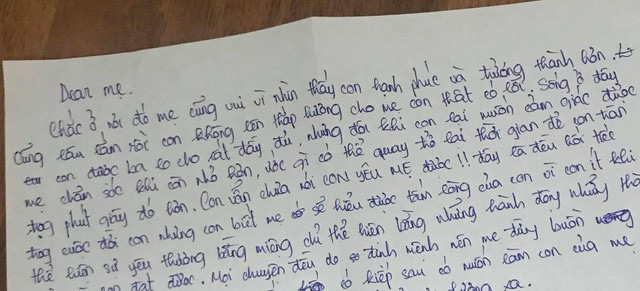 Dear mẹ.
Chắc ở nơi đó mẹ cũng vui vì nhìn thấy con hạnh phúc và trưởng thành hơn.
Cũng lâu lắm rồi con không lên thắp hương cho mẹ con thật có lỗi. Sống ở đây
con được ba lo cho rất đầy đủ nhưng đôi khi con lại muốn cảm giác được
mẹ chăm sóc khi còn nhỏ hơn, ước gì có thể quay trở lại thời gian để con trân
trọng phút giây đó hơn. Con vẫn chưa nói CON YÊU MẸ được!! đây là điều hối tiếc
trong cuộc đời con nhưng con biết mẹ sẽ hiểu được tấm lòng của con vì con ít khi
thể hiện sự yêu thương bằng miệng chỉ thể hiện bằng những hành động những thứ
con đạt được. Mọi chuyện đều do định mệnh nên mẹ đừng buồn
có kiếp sau có muốn làm con của mẹ
xa.